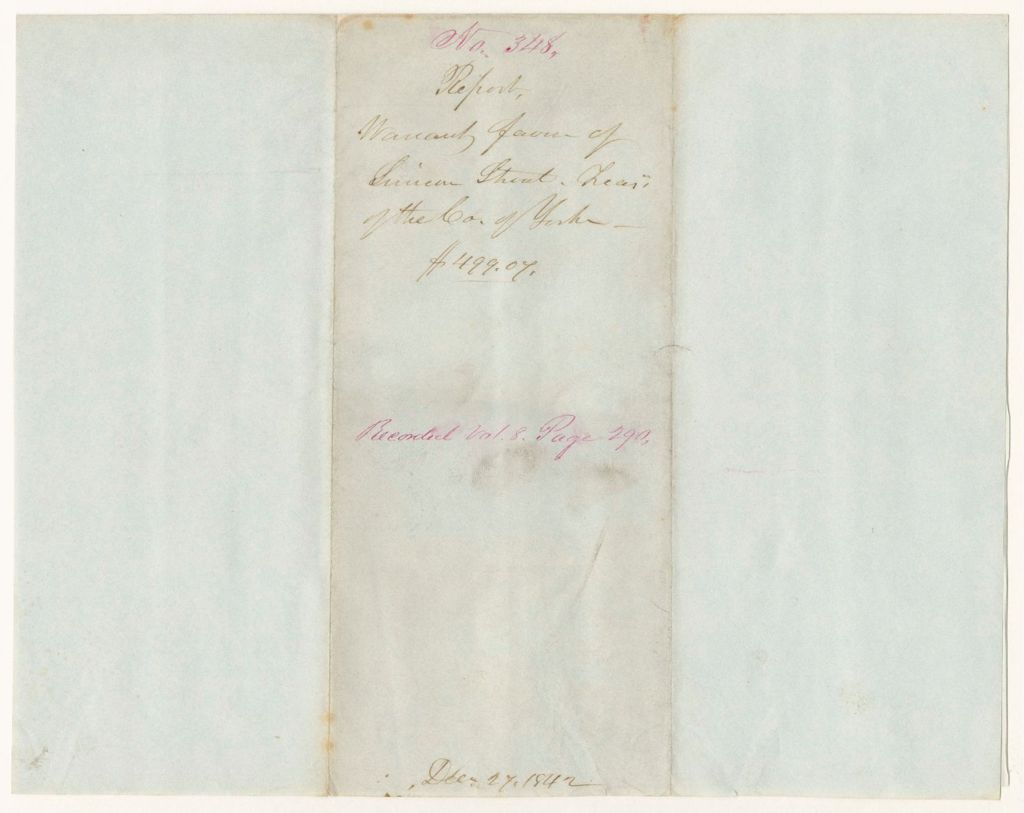 No. 348.
Report,
Warrant favor of
Simeon Strout. Treasr
of the Co. of York
$499.07.
Recorded Vol. 8. Page 290,
Decr 27, 1842